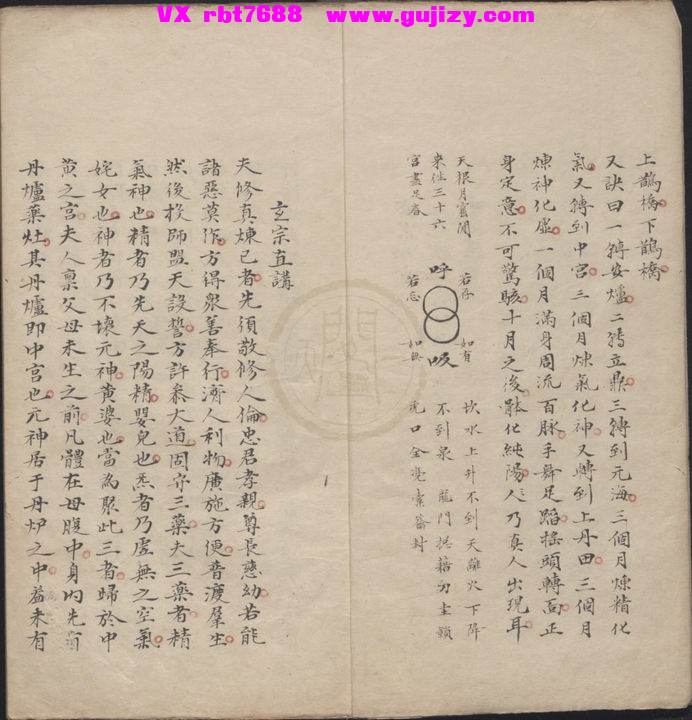 VX rbt7688 www.gujizy.com
上鵲橋下鵲橋
又訣曰一轉安爐二轉立鼎三轉到元海三個月煉精化
氣又轉到中宮三個月煉氣化神又轉到上丹田三個月
煉神化虛一個月滿身周流百脉手舞足蹈搖頭轉面正
身定意不可驚駭十月之後骵化純陽人乃真人出現耳
天根月窟閒
來徃三十六
宮盡是春
呼
吸
若存
若忘
如有
如無
坎水上升不到天離火下降
不到泉 龍門
玄宗直講
夫修真煉己者先須敬修人倫忠君孝親尊長慈幼若能
諸惡莫作方得衆善奉行濟人利物廣施方便普渡羣生
然後投師盟天設誓方許叅大道固守三藥夫三藥者精
氣神也精者乃先天之陽精嬰兒也炁者乃虛無之空氣
姹女也神者乃不壞元神黃婆也當為聚此三者歸於中
黃之宮夫人禀父母未生之前凡體在母腹中身內先有
丹爐藥灶其丹爐即中宮也元神居于丹炉之中蓋未有